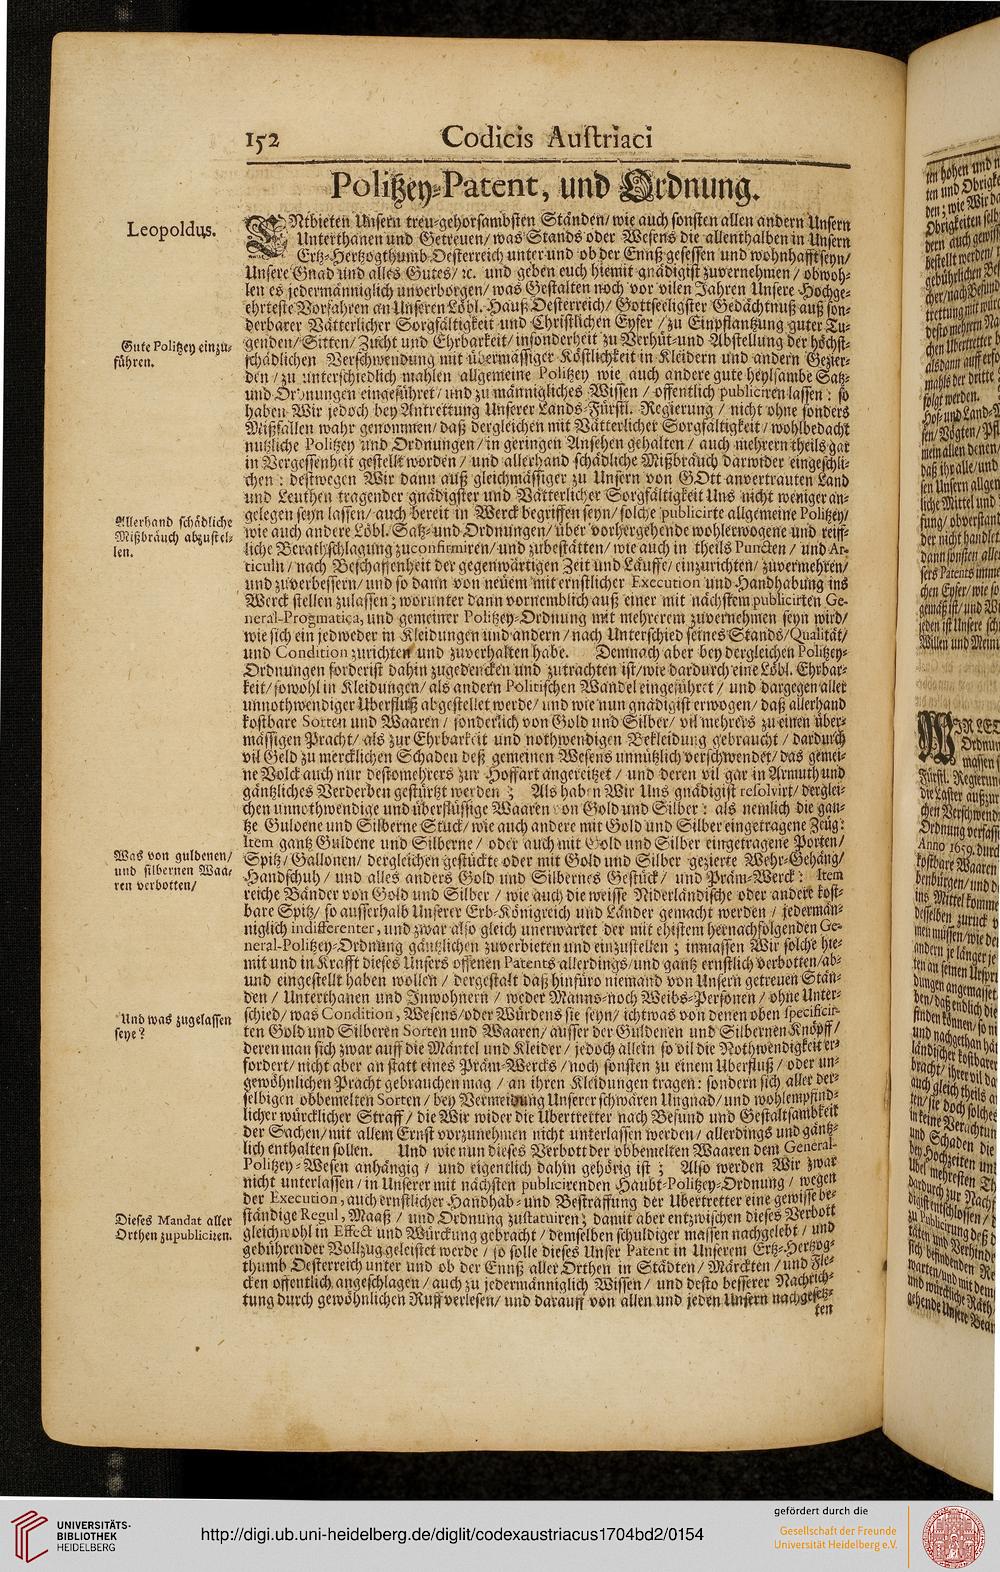 152 Codicis Auſtriaci
Politzey-Patent, und Ordnung.
Leopoldus.
ENtbieten Unſern treu-gehorſambſten Ständen/ wie auch ſonſten allen andern Unſern
Unterthanen und Getreuen/ was Stands oder Weſens die allenthalben in Unſern
Ertz-Hertzogthumb Oeſterreich unter und ob der Ennß geſeſſen und wohnhafft ſeyn/
Unſere Gnad und alles Gutes/ ꝛc. und geben euch hiemit gnädigiſt zuvernehmen / obwoh-
len es jedermänniglich unverborgen/ was Geſtalten noch vor vilen Jahren Unſere Hochge-
ehrteſte Vorfahren an Unſeren Löbl. Hauß Oeſterreich/ Gottſeeligſter Gedächtnuß auß ſon-
derbarer Vätterlicher Sorgfältigkeit und Chriſtlichen Eyfer / zu Einpflantzung guter Tu-
Gute Politzey einzu-
führen.
genden/ Sitten/ Zucht und Ehrbarkeit/ inſonderheit zu Verhüt-und Abſtellung der höchſt-
ſchädlichen Verſchwendung mit übermäſſiger Köſtlichkeit in Kleidern und andern Gezier-
den / zu unterſchiedlich mahlen allgemeine Politzey wie auch andere gute heylſambe Satz-
und Ordnungen eingeführet / und zu männigliches Wiſſen / offentlich publiciren laſſen : ſo
haben Wir jedoch bey Antrettung Unſerer Lands-Fürſtl. Regierung / nicht ohne ſonders
Mißfallen wahr genommen/ daß dergleichen mit Vätterlicher Sorgfältigkeit / wohlbedacht
nutzliche Politzey und Ordnungen / in geringen Anſehen gehalten / auch mehrern theils gar
in Vergeſſenheit geſtellt worden / und allerhand ſchädliche Mißbräuch darwider eingeſchli-
chen : deſtwegen Wir dann auß gleichmäſſiger zu Unſern von GOtt anvertrauten Land
und Leuthen tragender gnädigſter und Vätterlicher Sorgfältigkeit Uns nicht weniger an-
gelegen ſeyn laſſen/ auch bereit in Werck begriffen ſeyn/ ſolche publicirte allgemeine Politzey/
Allerhand ſchädliche
Mißbräuch abzuſtel-
len.
wie auch andere Löbl. Satz-und Ordnungen/ über vorhergehende wohlerwogene und reiff-
liche Berathſchlagung zuconfirmiren/ und zubeſtätten/ wie auch in theils Puncten / und Ar-
ticuln / nach Beſchaffenheit der gegenwärtigen Zeit und Läuffe/ einzurichten/ zuvermehren/
und zuverbeſſern/ und ſo dann von neuem mit ernſtlicher Execution und Handhabung ins
Werck ſtellen zulaſſen ; worunter dann vornemblich auß einer mit nächſtem publicirten Ge-
neral-Progmatica, und gemeiner Politzey-Ordnung mit mehrerem zuvernehmen ſeyn wird/
wie ſich ein jedweder in Kleidungen und andern / nach Unterſchied ſeines Stands/ Qualität/
und Condition zurichten und zuverhalten habe. Demnach aber bey dergleichen Politzey-
Ordnungen forderiſt dahin zugedencken und zutrachten iſt/ wie dardurch eine Löbl. Ehrbar-
keit/ ſowohl in Kleidungen/ als andern Politiſchen Wandel eingeführet / und dargegen aller
unnothwendiger Uberfluß abgeſtellet werde/ und wie nun gnädigiſt erwogen/ daß allerhand
koſtbare Sorten und Waaren / ſonderlich von Gold und Silber/ vil mehrers zu einen über-
mäſſigen Pracht/ als zur Ehrbarkeit und nothwendigen Bekleidung gebraucht / dardurch
vil Geld zu mercklichen Schaden deß gemeinen Weſens unnützlich verſchwendet/ das gemei-
ne Volck auch nur deſtomehrers zur Hoffart angereitzet / und deren vil gar in Armuth und
gäntzliches Verderben geſtürtzt werden ; Als haben Wir Uns gnädigiſt reſolvirt/ derglei-
chen unnothwendige und überflüſſige Waaren von Gold und Silber : als nemlich die gan-
tze Guldene und Silberne Stuck/ wie auch andere mit Gold und Silber eingetragene Zeug:
Item gantz Guldene und Silberne / oder auch mit Gold und Silber eingetragene Porten/
Was von guldenen/
und ſilbernen Waa-
ren verbotten/
Spitz/ Gallonen/ dergleichen geſtückte oder mit Gold und Silber gezierte Wehr-Gehäng/
Handſchuh / und alles anders Gold und Silbernes Geſtück/ und Präm-Werck : Item
reiche Bänder von Gold und Silber / wie auch die weiſſe Niderländiſche oder andere koſt-
bare Spitz/ ſo auſſerhalb Unſerer Erb-Königreich und Länder gemacht werden / jedermän-
niglich indifferenter, und zwar alſo gleich unerwartet der mit ehiſtem hernachfolgenden Ge-
neral-Politzey-Ordnung gäntzlichen zuverbieten und einzuſtellen ; inmaſſen Wir ſolche hie-
mit und in Krafft dieſes Unſers offenen Patents allerdings/ und gantz ernſtlich verbotten/ ab-
und eingeſtellt haben wollen / dergeſtalt daß hinfüro niemand von Unſern getreuen Stän-
den / Unterthanen und Inwohnern / weder Manns-noch Weibs-Perſonen / ohne Unter-
Und was zugelaſſen
ſeye?
ſchied/ was Condition, Weſens/ oder Würdens ſie ſeyn/ ichtwas von denen oben ſpecificir-
ten Gold und Silberen Sorten und Waaren/ auſſer der Guldenen und Silbernen Knöpff/
deren man ſich zwar auff die Mäntel und Kleider / jedoch allein ſo vil die Nothwendigkeit er-
fordert/ nicht aber an ſtatt eines Präm-Wercks / noch ſonſten zu einem Uberfluß / oder un-
gewöhnlichen Pracht gebrauchen mag / an ihren Kleidungen tragen: ſondern ſich aller der-
ſelbigen obbemelten Sorten / bey Vermeidung Unſerer ſchwären Ungnad/ und wohlempfind-
licher würcklicher Straff / die Wir wider die Ubertretter nach Befund und Geſtaltſambkeit
der Sachen/ mit allem Ernſt vorzunehmen nicht unterlaſſen werden/ allerdings und gäntz-
lich enthalten ſollen. Und wie nun dieſes Verbott der obbemelten Waaren dem General-
Politzey-Weſen anhängig / und eigentlich dahin gehörig iſt ; Alſo werden Wir zwar
nicht unterlaſſen / in Unſerer mit nächſten publicirenden Haubt-Politzey-Ordnung / wegen
der Execution, auch ernſtlicher Handhab-und Beſtraffung der Ubertretter eine gewiſſe be-
Dieſes Mandat aller
Orthen zupubliciren.
ſtändige Regul, Maaß / und Ordnung zuſtatuiren ; damit aber entzwiſchen dieſes Verbott
gleichwohl in Effect und Würckung gebracht / demſelben ſchuldiger maſſen nachgelebt / und
gebührender Vollzug geleiſtet werde / ſo ſolle dieſes Unſer Patent in Unſerem Ertz-Hertzog-
thumb Oeſterreich unter und ob der Ennß aller Orthen in Städten/ Märckten / und Fle-
cken offentlich angeſchlagen / auch zu jedermänniglich Wiſſen / und deſto beſſerer Nachrich-
tung durch gewöhnlichen Ruff verleſen/ und darauff von allen und jeden Unſern nachgeſetz-
ten
UNIVERSITÄTS-
BIBLIOTHEK
HEIDELBERG
http://digi.ub.uni-heidelberg.de/diglit/codexaustriacus1704bd2/0154
gefördert durch die
Gesellschaft der Freunde
Universität Heidelberg e.V.